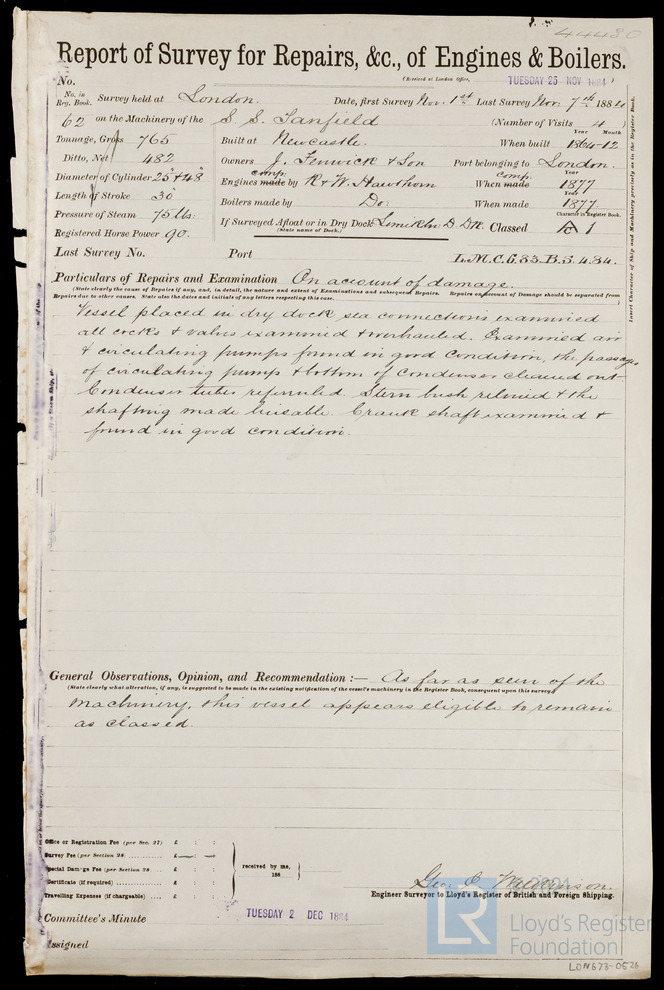 44480
Report of Survey for Repairs, &c., of Engines & Boilers.
No.
(Received at London Office, TUESDAY 25 NOV 1884)
No. in Reg. Book. Survey held at London. Date, first Survey Nov. 1st Last Survey Nov. 7th 1884
62 on the Machinery of the S. S. Tanfield (Number of Visits 4)
Tonnage, Gross 765 Built at Newcastle. When built Year Month 1864-12
Ditto, Net 482 Owners J. Fenwick & Son Port belonging to London.
Diameter of Cylinder 25" & 48" Engines made comp. by R & W. Hawthorn When made comp. Year 1877
Length of Stroke 30" Boilers made by Do. When made Year 1877
Pressure of Steam 75 lbs. If Surveyed Afloat or in Dry Dock D. Dk. Classed Character in Register Book. A 1
(State name of Dock.)
Registered Horse Power 90.
Last Survey No. Port L.M.C. 6.83. B.S. 4.84.
Insert Character of Ship and Machinery precisely as in the Register Book.
Particulars of Repairs and Examination On account of damage.
(State clearly the cause of Repairs if any, and, in detail, the nature and extent of Examinations and subsequent Repairs. Repairs on account of Damage should be separated from
Repairs due to other causes. State also the dates and initials of any letters respecting this case.)
Vessel placed in dry dock sea connections examined
all cocks & valves examined & overhauled. Examined air
& circulating pumps found in good condition, the passages
of circulating pumps & bottom of condenser cleaned out
Condenser tubes referruled. Stern bush relined & the
shafting made useable. Crank shaft examined &
found in good condition.
General Observations, Opinion, and Recommendation :— As far as seen of the
(State clearly what alteration, if any, is suggested to be made in the existing notification of the vessel's machinery in the Register Book, consequent upon this survey.)
machinery, this vessel appears eligible to remain
as classed.
Office or Registration Fee (per Sec. 27) £ : :
Survey Fee (per Section 28 £ — : —
Special Damage Fee (per Section 28 £ : :
Certificate (if required) £ : :
Travelling Expenses (if chargeable) £ : :
received by me,
188
Geo. C.
Engineer Surveyor to Lloyd's Register of British and Foreign Shipping.
Committee's Minute TUESDAY 2 DEC 1884
Assigned
LR
Lloyd's Register
Foundation
LON673-0526